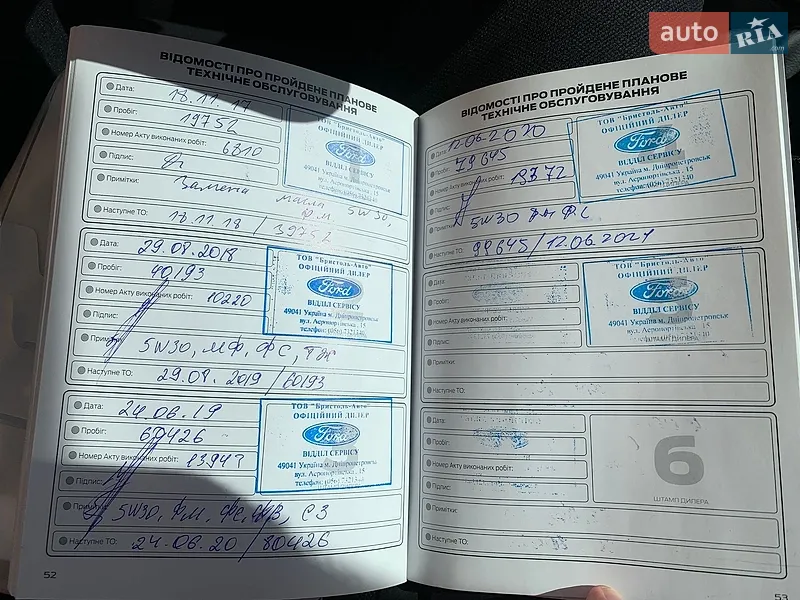 auto RIA .com
ВІДОМОСТІ ПРО ПРОЙДЕНЕ ПЛАНОВЕ
ТЕХНІЧНЕ ОБСЛУГОВУВАННЯ
Дата: 18.11.17
Пробіг: 19752
Номер Акту виконаних робіт: 6810
Підпис:
Примітки: Замена масла 5W30,
Ф.М.
Наступне ТО: 18.11.18 / 39752
ТОВ "Бристоль-Авто"
ОФІЦІЙНИЙ ДИЛЕР
Ford
ВІДДІЛ СЕРВІСУ
49041 Україна м. Дніпропетровськ
вул. Аеропортівська, 15
Дата: 29.08.2018
Пробіг: 40193
Номер Акту виконаних робіт: 10220
Підпис:
Примітки: 5W30, МФ, ФС,
Наступне ТО: 29.08.2019 / 60193
ТОВ "Бристоль-Авто"
ОФІЦІЙНИЙ ДИЛЕР
Ford
ВІДДІЛ СЕРВІСУ
49041 Україна м. Дніпропетровськ
вул. Аеропортівська, 15
телефон: (056) 7321340
Дата: 24.06.19
Пробіг: 60426
Номер Акту виконаних робіт: 13943
Підпис:
Примітки: 5W30, ФМ, ФС, СЗ
Наступне ТО: 24.06.20 / 80426
ТОВ "Бристоль-Авто"
ОФІЦІЙНИЙ ДИЛЕР
Ford
ВІДДІЛ СЕРВІСУ
49041 Україна м. Дніпропетровськ
вул. Аеропортівська, 15
телефон: (056) 7321340
52
ВІДОМОСТІ ПРО ПРОЙДЕНЕ ПЛАНОВЕ
ТЕХНІЧНЕ ОБСЛУГОВУВАННЯ
Дата: 12.06.2020
Пробіг: 79645
Номер Акту виконаних робіт: 19372
Підпис:
Примітки: 5W30 ФС
Наступне ТО: 99645/12.06.2021
ТОВ "Бристоль-Авто"
ОФІЦІЙНИЙ ДИЛЕР
Ford
ВІДДІЛ СЕРВІСУ
49041 Україна м. Дніпропетровськ
вул. Аеропортівська, 15
телефон: (056) 7321340
Дата:
Пробіг:
Номер Акту виконаних робіт:
Підпис:
Примітки:
Наступне ТО:
ТОВ "Бристоль-Авто"
ОФІЦІЙНИЙ ДИЛЕР
Ford
ВІДДІЛ СЕРВІСУ
49041 Україна м. Дніпропетровськ
вул. Аеропортівська, 15
Дата:
Пробіг:
Номер Акту виконаних робіт:
Підпис:
Примітки:
Наступне ТО:
6
ШТАМП ДИЛЕРА
53